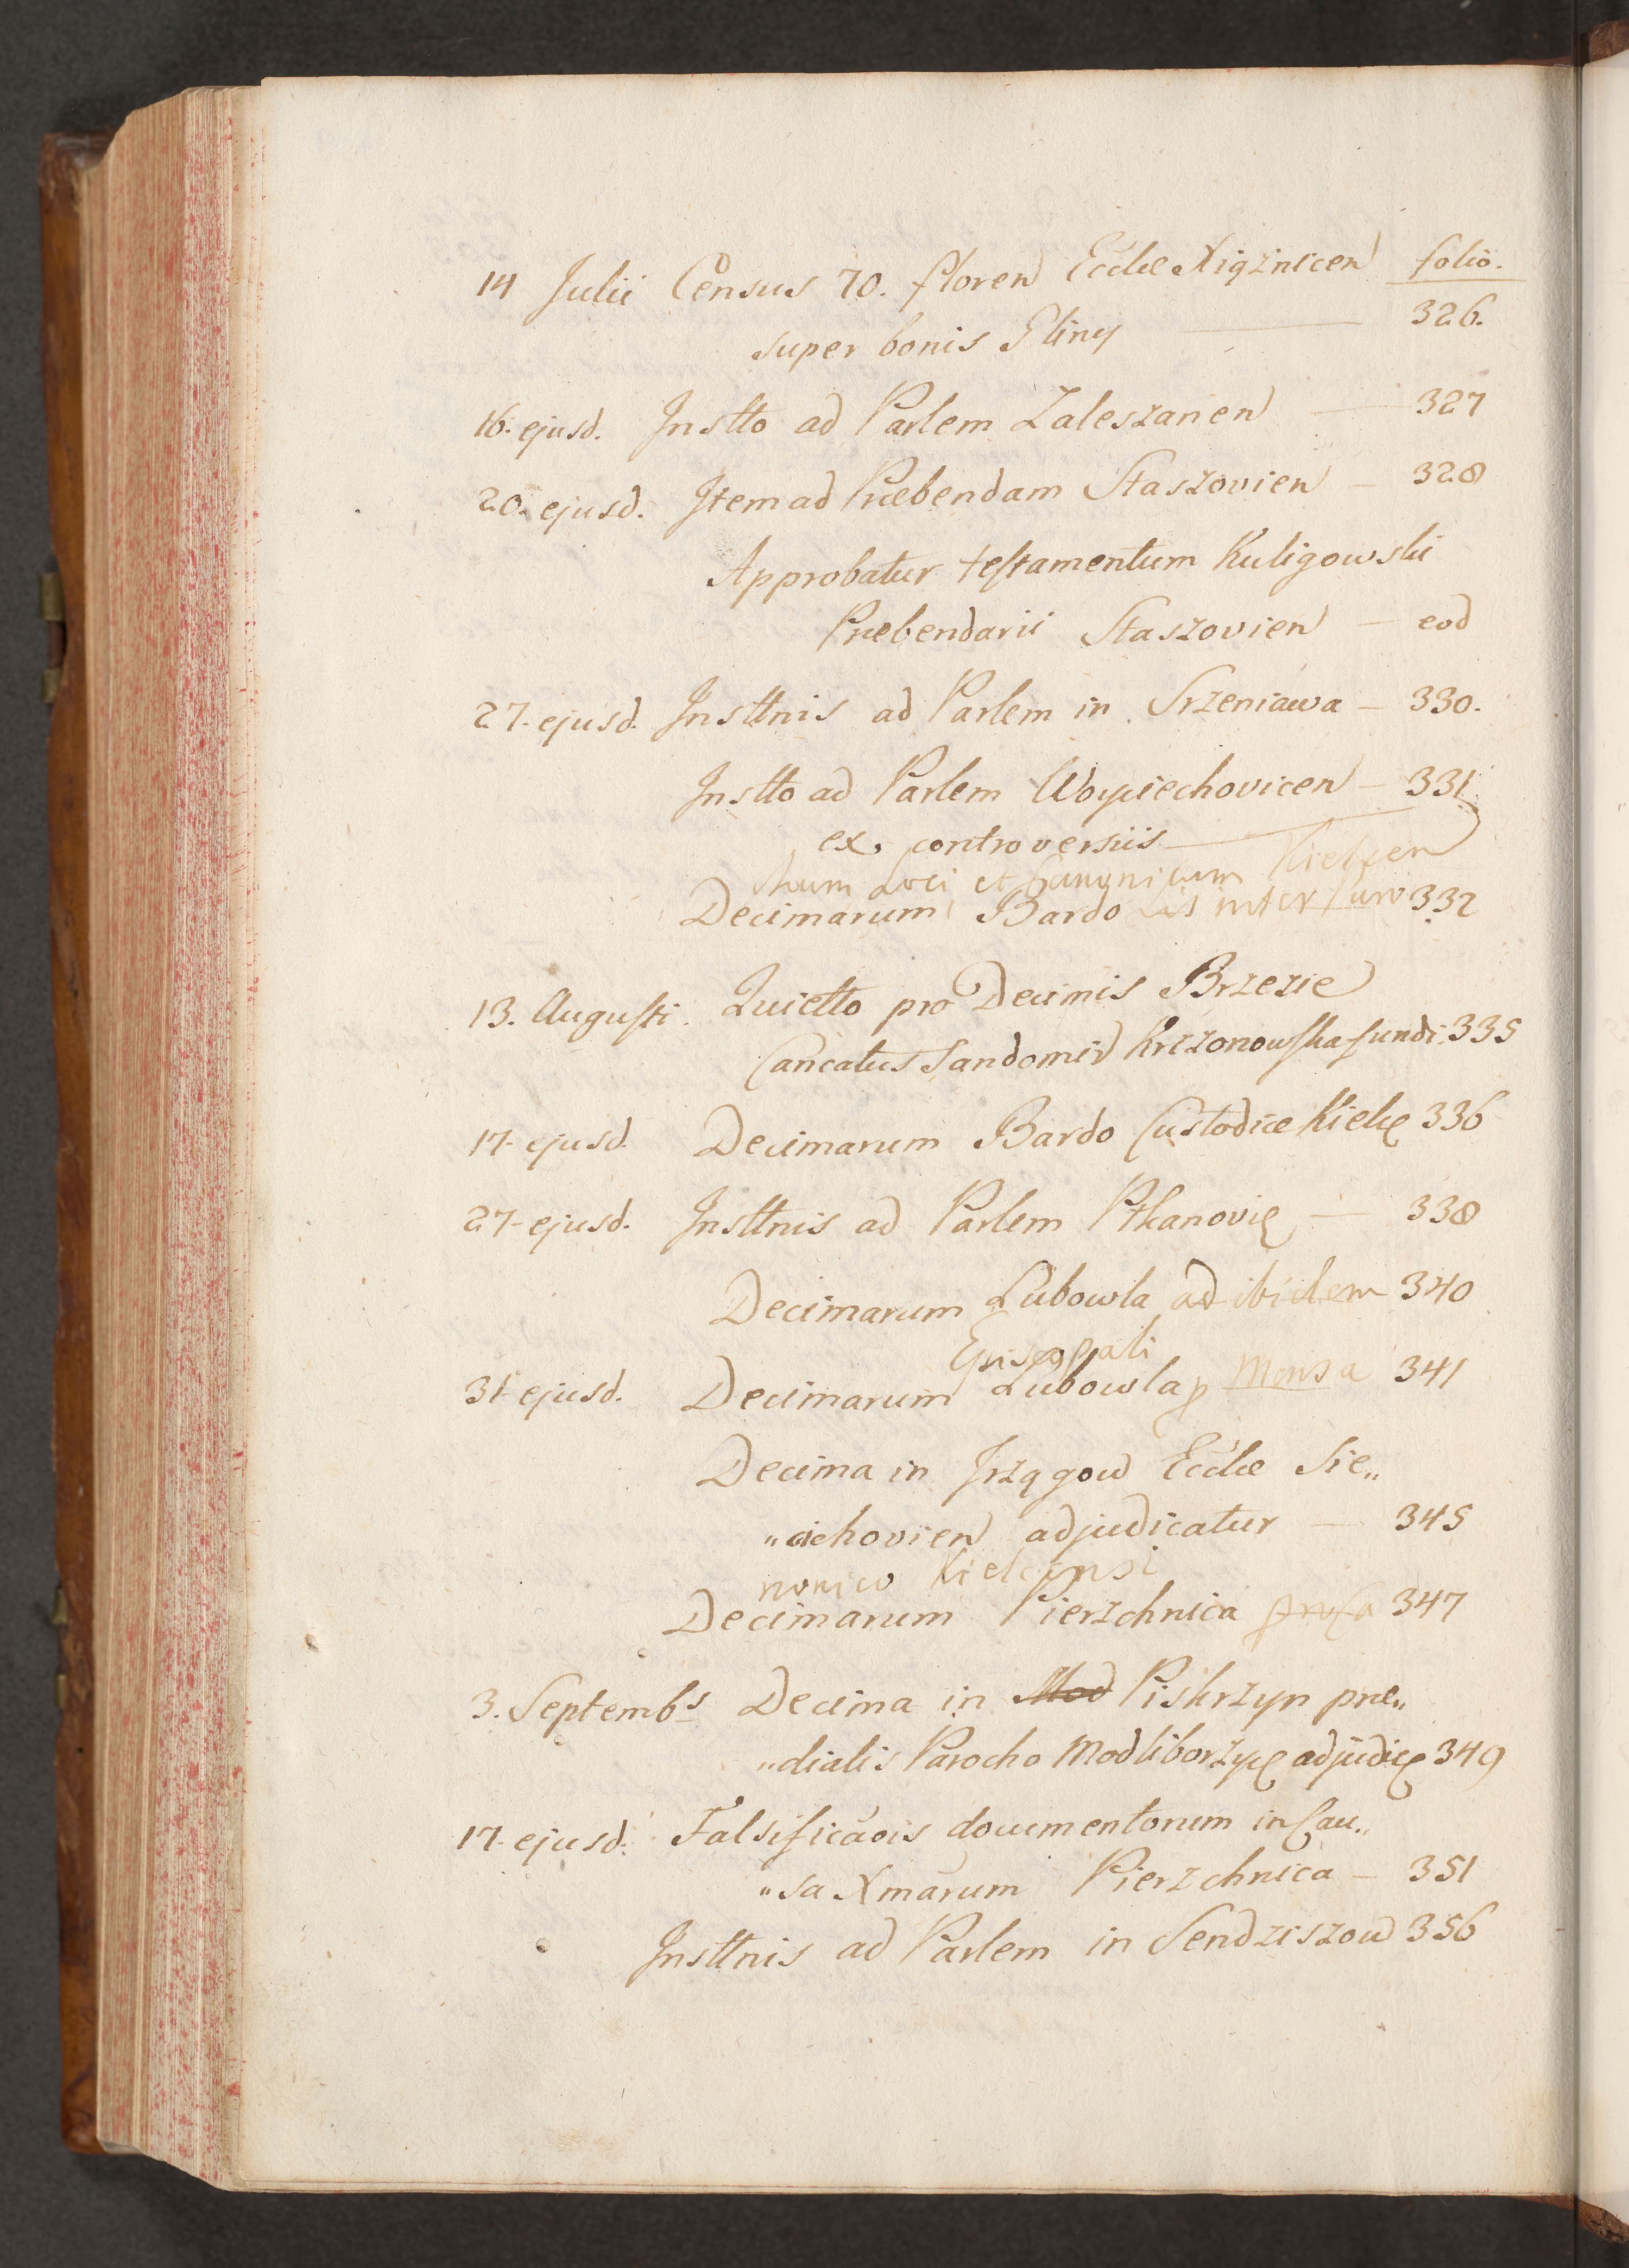 14 Julii Census 70. floren Eccłae Xiąznicen folio.
super bonis Gliny — 326.
16. ejusd. Instto ad Parlem Zaleszanen — 327
20. ejusd. Item ad Praebendam Staszovien — 328
Approbatur testamentum Kuligowski
Praebendarii Staszovien — eod
27. ejusd. Insttnis ad Parlem in Srzeniawa — 330.
Instto ad Parlem Woyciechovicen — 331.
ex controversiis —
chum Loci et Canonicum Kielcen
Decimarum Bardo Lis inter Paro 332
13. Augusti. Quietto pro Decimis Brzezie
Cancatus Sandomir Krzzonowska fundi. 335
17. ejusd. Decimarum Bardo Custodiae Kielc 336
27. ejusd. Insttnis ad Parlem Ptkanovic — 338
Decimarum Lubowla ad ibidem 340
Episcopali
31. ejusd. Decimarum Lubowla p Mensa 341
Decima in Jrządow Eccłae Sie„
„ciechovien adjudicatur — 345
nonico Kielcensi
Decimarum Pierzchnica pro Ca 347
3. Septembs Decima in Mod Piskrzyn prae„
„dialis Parocho Modliborzyc adjudic 349
17. ejusd. Falsificaois documentorum in Cau„
„sa Xmarum Pierzchnica — 351
Insttnis ad Parlem in Sendziszow 356